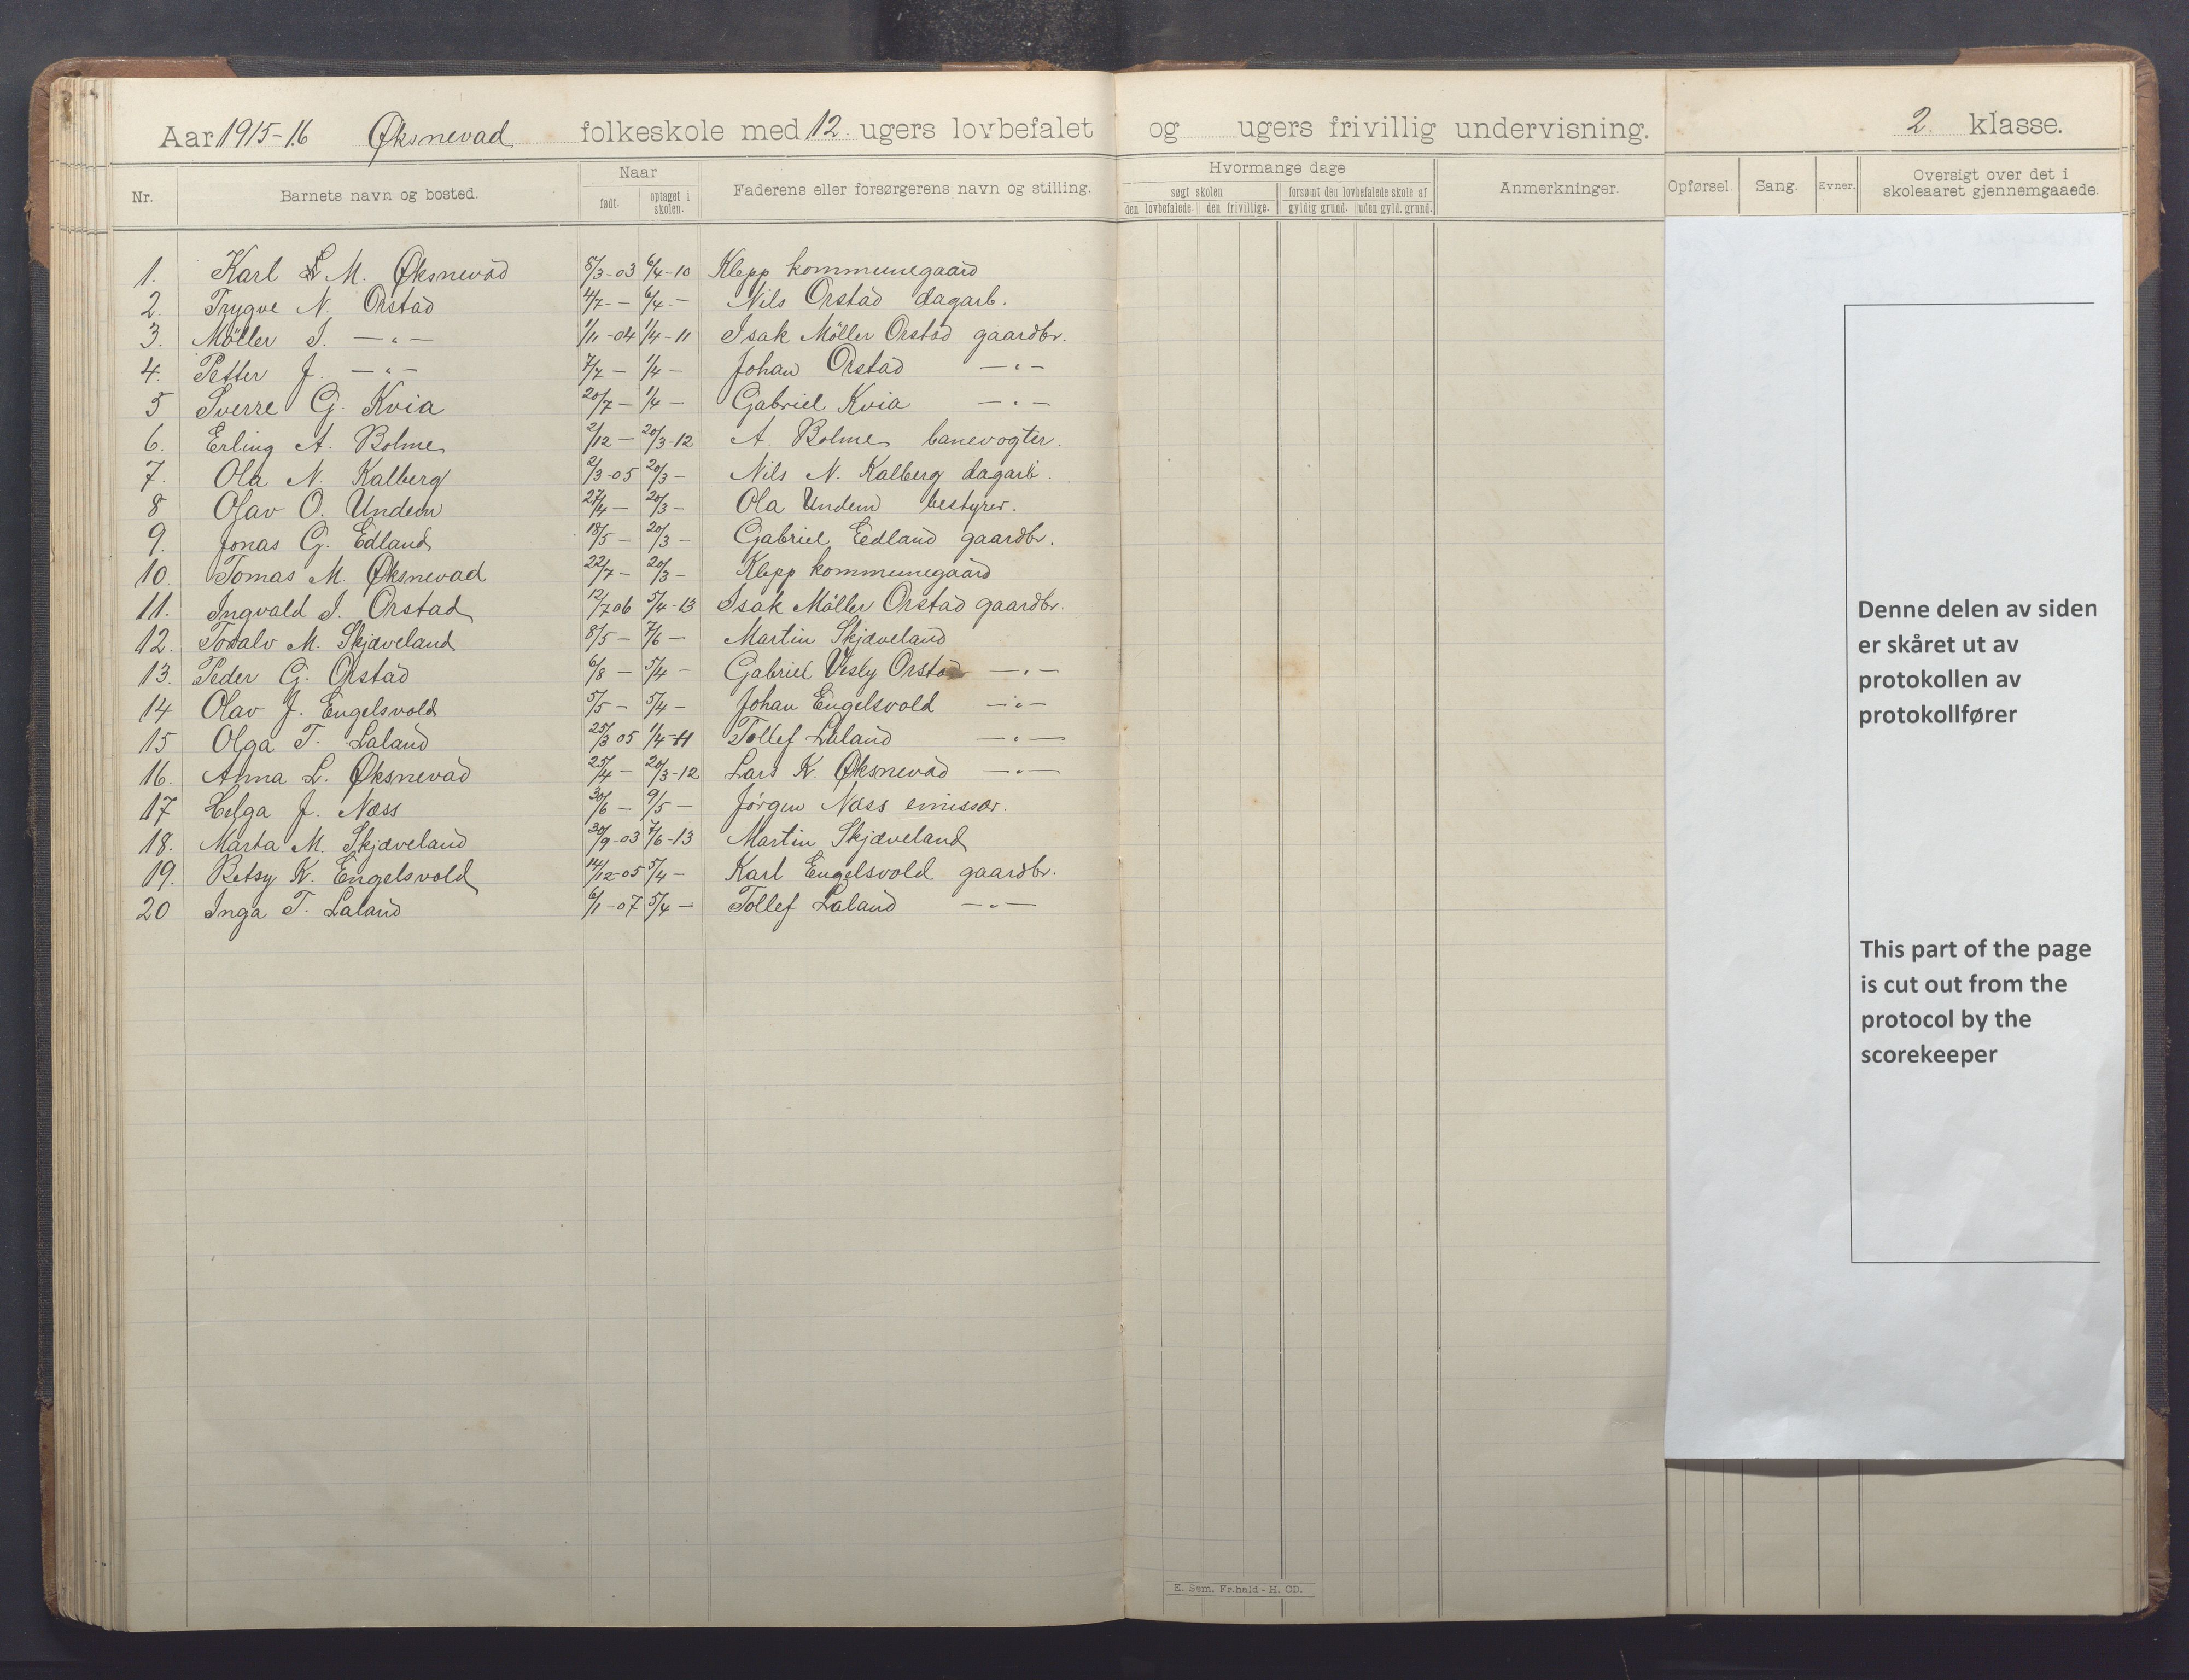 Aar 1915-16 Øksnevad folkeskole med 12. ugers lovbefalet og ugers frivillig undervisning. 2. klasse.
Nr. Barnets navn og bosted. Naar Faderens eller forsørgerens navn og stilling. Hvormange dage Anmerkninger. Opførsel. Sang. Evner. Oversigt over det i skoleaaret gjennemgaaede.
født. optaget i skolen. søgt skolen forsømt den lovbefalede skole af
den lovbefalede. den frivillige. gyldig grund. uden gyld. grund.
1. Karl M. Øksnevad 8/3-03 6/4-10 Klepp kommunegaard
2. Trygve N. Orstad 4/7 - 6/4 - Nils Orstad dagarb.
3. Möller I. -"- 1/11-04 1/4-11 Isak Möller Orstad gaardbr.
4. Petter J. -"- 7/7 - 1/4 - Johan Orstad -"-
5 Sverre G. Kvia 20/7 - 1/4 - Gabriel Kvia -"-
6. Erling A. Bolme 2/12 - 20/3-12 A. Bolme banevogter.
7. Ola N. Kalberg 2/3-05 20/3 - Nils N. Kalberg dagarb.
8 Olav O. Undem 27/4 - 20/3 - Ola Undem bestyrer.
9. Jonas G. Edland 18/5 - 20/3 - Gabriel Eedland gaardbr.
10. Tomas M. Øksnevad 22/7 - 20/3 - Klepp kommunegaard
11. Ingvald I. Orstad 12/7 06 5/4-13 Isak Möller Orstad gaardbr.
12. Todalv M. Skjæveland 8/5 - 7/6 - Martin Skjæveland
13. Peder G. Orstad 6/8 - 5/4 - Gabriel Vesly Orstad -"-
14 Olav J. Engelsvold 5/5 - 5/4 - Johan Engelsvold -"-
15 Olga T. Laland 25/3 05 1/4-11 Tollef Laland -"-
16. Anna L. Øksnevad 25/4 - 20/3-12 Lars K. Øksnevad -"-
17 Helga J. Næss 30/6 - 9/5 - Jörgen Næss emissær.
18. Marta M. Skjæveland 30/9-03 7/6-13 Martin Skjæveland
19. Betsy K. Engelsvold 14/12-05 5/4 - Karl Engelsvold gaardbr.
20 Inga T. Laland 6/1-07 5/4 - Tollef Laland -"-
Denne delen av siden
er skåret ut av
protokollen av
protokollfører
This part of the page
is cut out from the
protocol by the
scorekeeper
E. Sem, Fr.hald - H. CD.